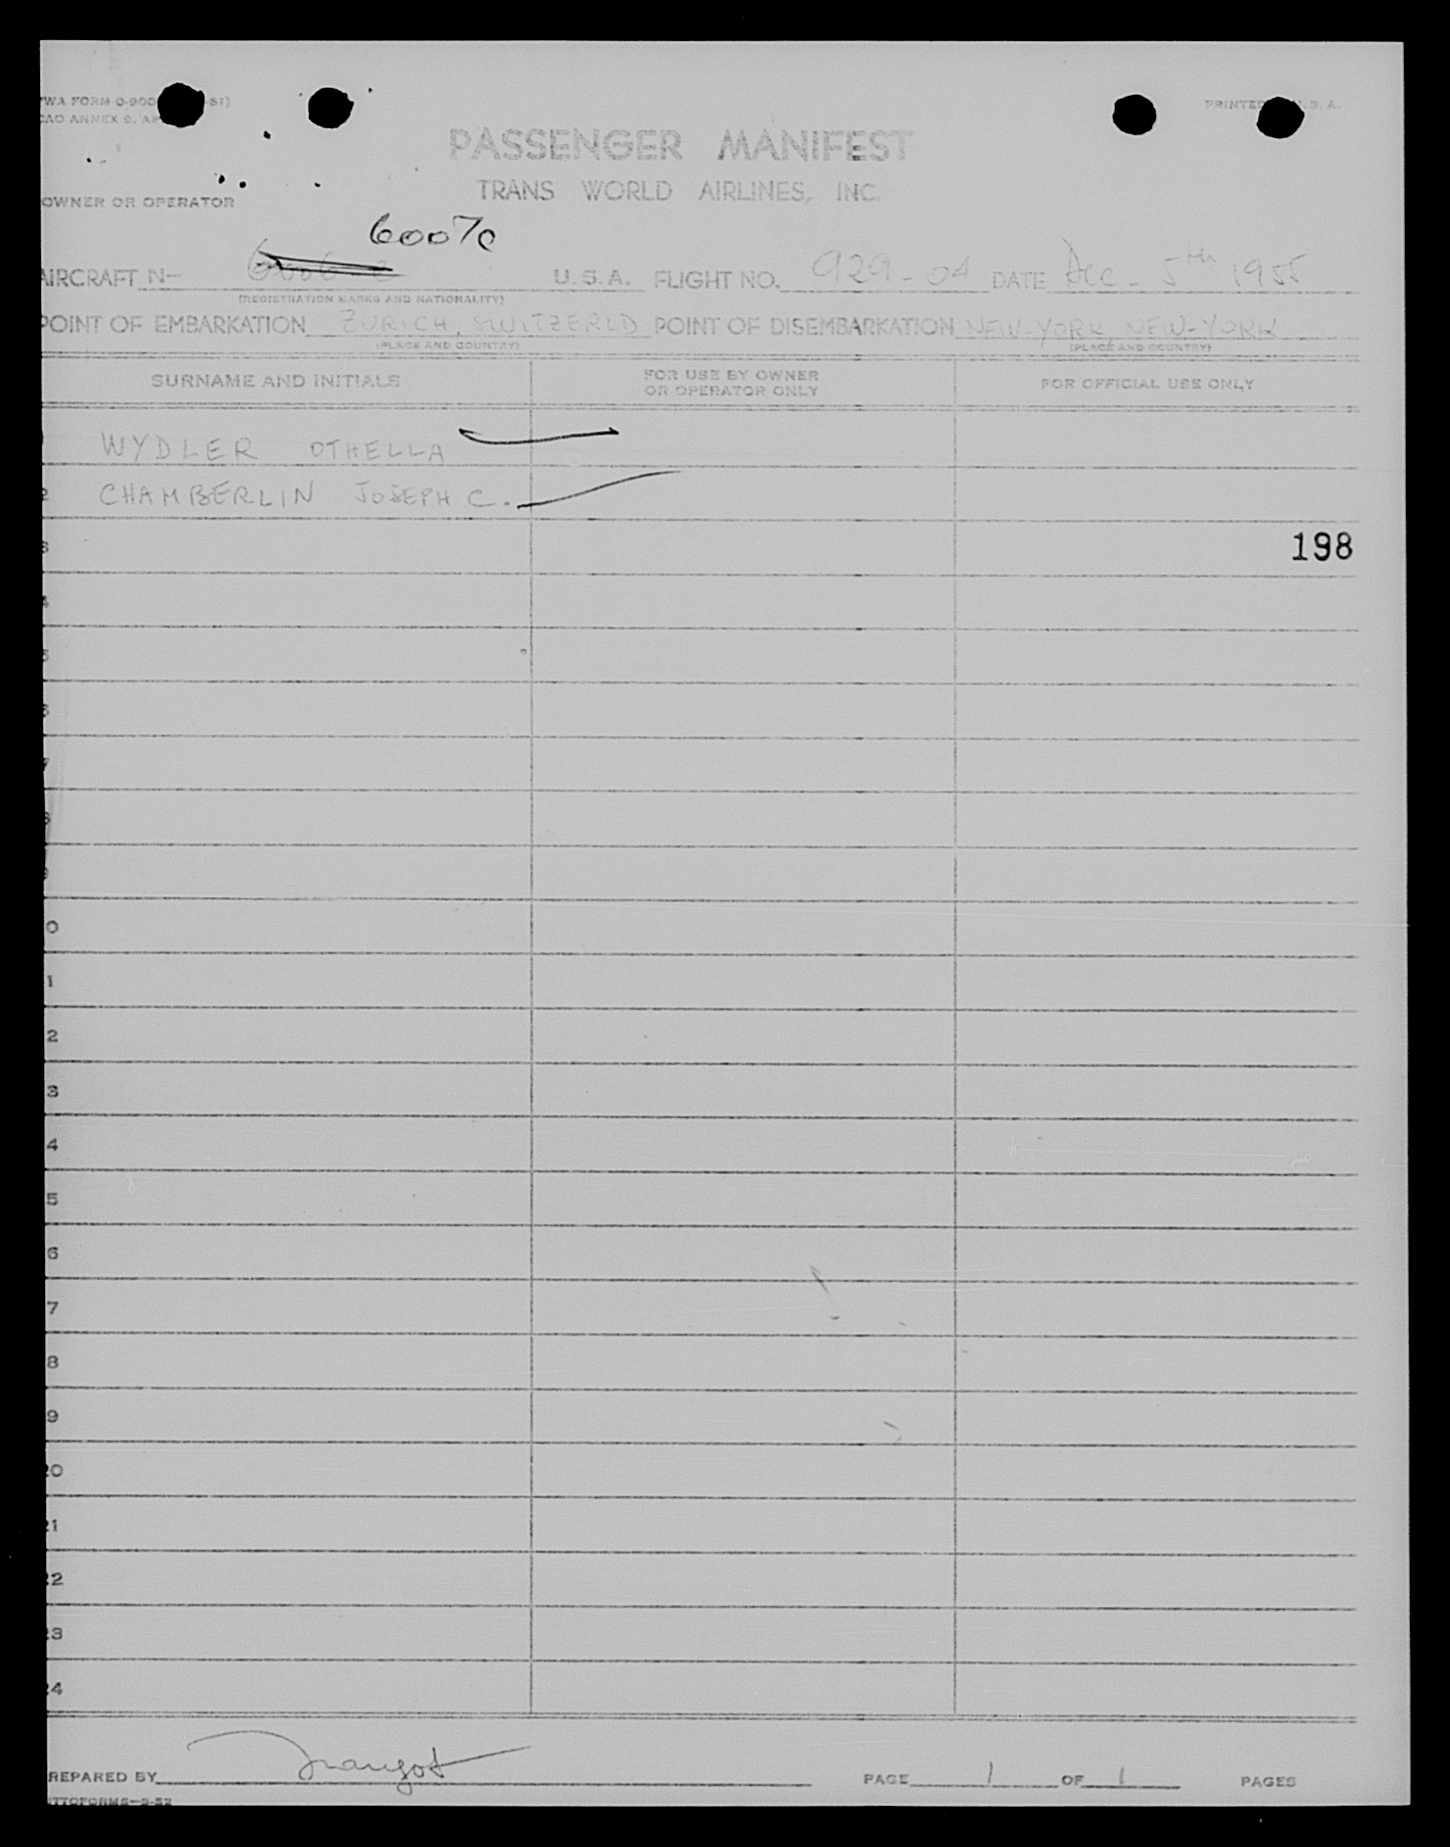 WA FORM 0-900 -51)
CAO ANNEX 9, AP PRINTED U.S.A.
PASSENGER MANIFEST
TRANS WORLD AIRLINES, INC.
OWNER OR OPERATOR
6007C
AIRCRAFT N- U.S.A. FLIGHT NO. 929-04 DATE Dec - 5th 1955
(REGISTRATION MARKS AND NATIONALITY)
POINT OF EMBARKATION ZURICH, SWITZERLD POINT OF DISEMBARKATION NEW-YORK, NEW-YORK
(PLACE AND COUNTRY) (PLACE AND COUNTRY)
SURNAME AND INITIALS FOR USE BY OWNER OR OPERATOR ONLY FOR OFFICIAL USE ONLY
WYDLER OTHELLA
2 CHAMBERLIN JOSEPH C.
3 198
4
5
6
7
8
9
0
1
2
3
4
5
6
7
8
9
20
21
22
23
24
REPARED BY PAGE 1 OF 1 PAGES
TTOFORMS-5-52